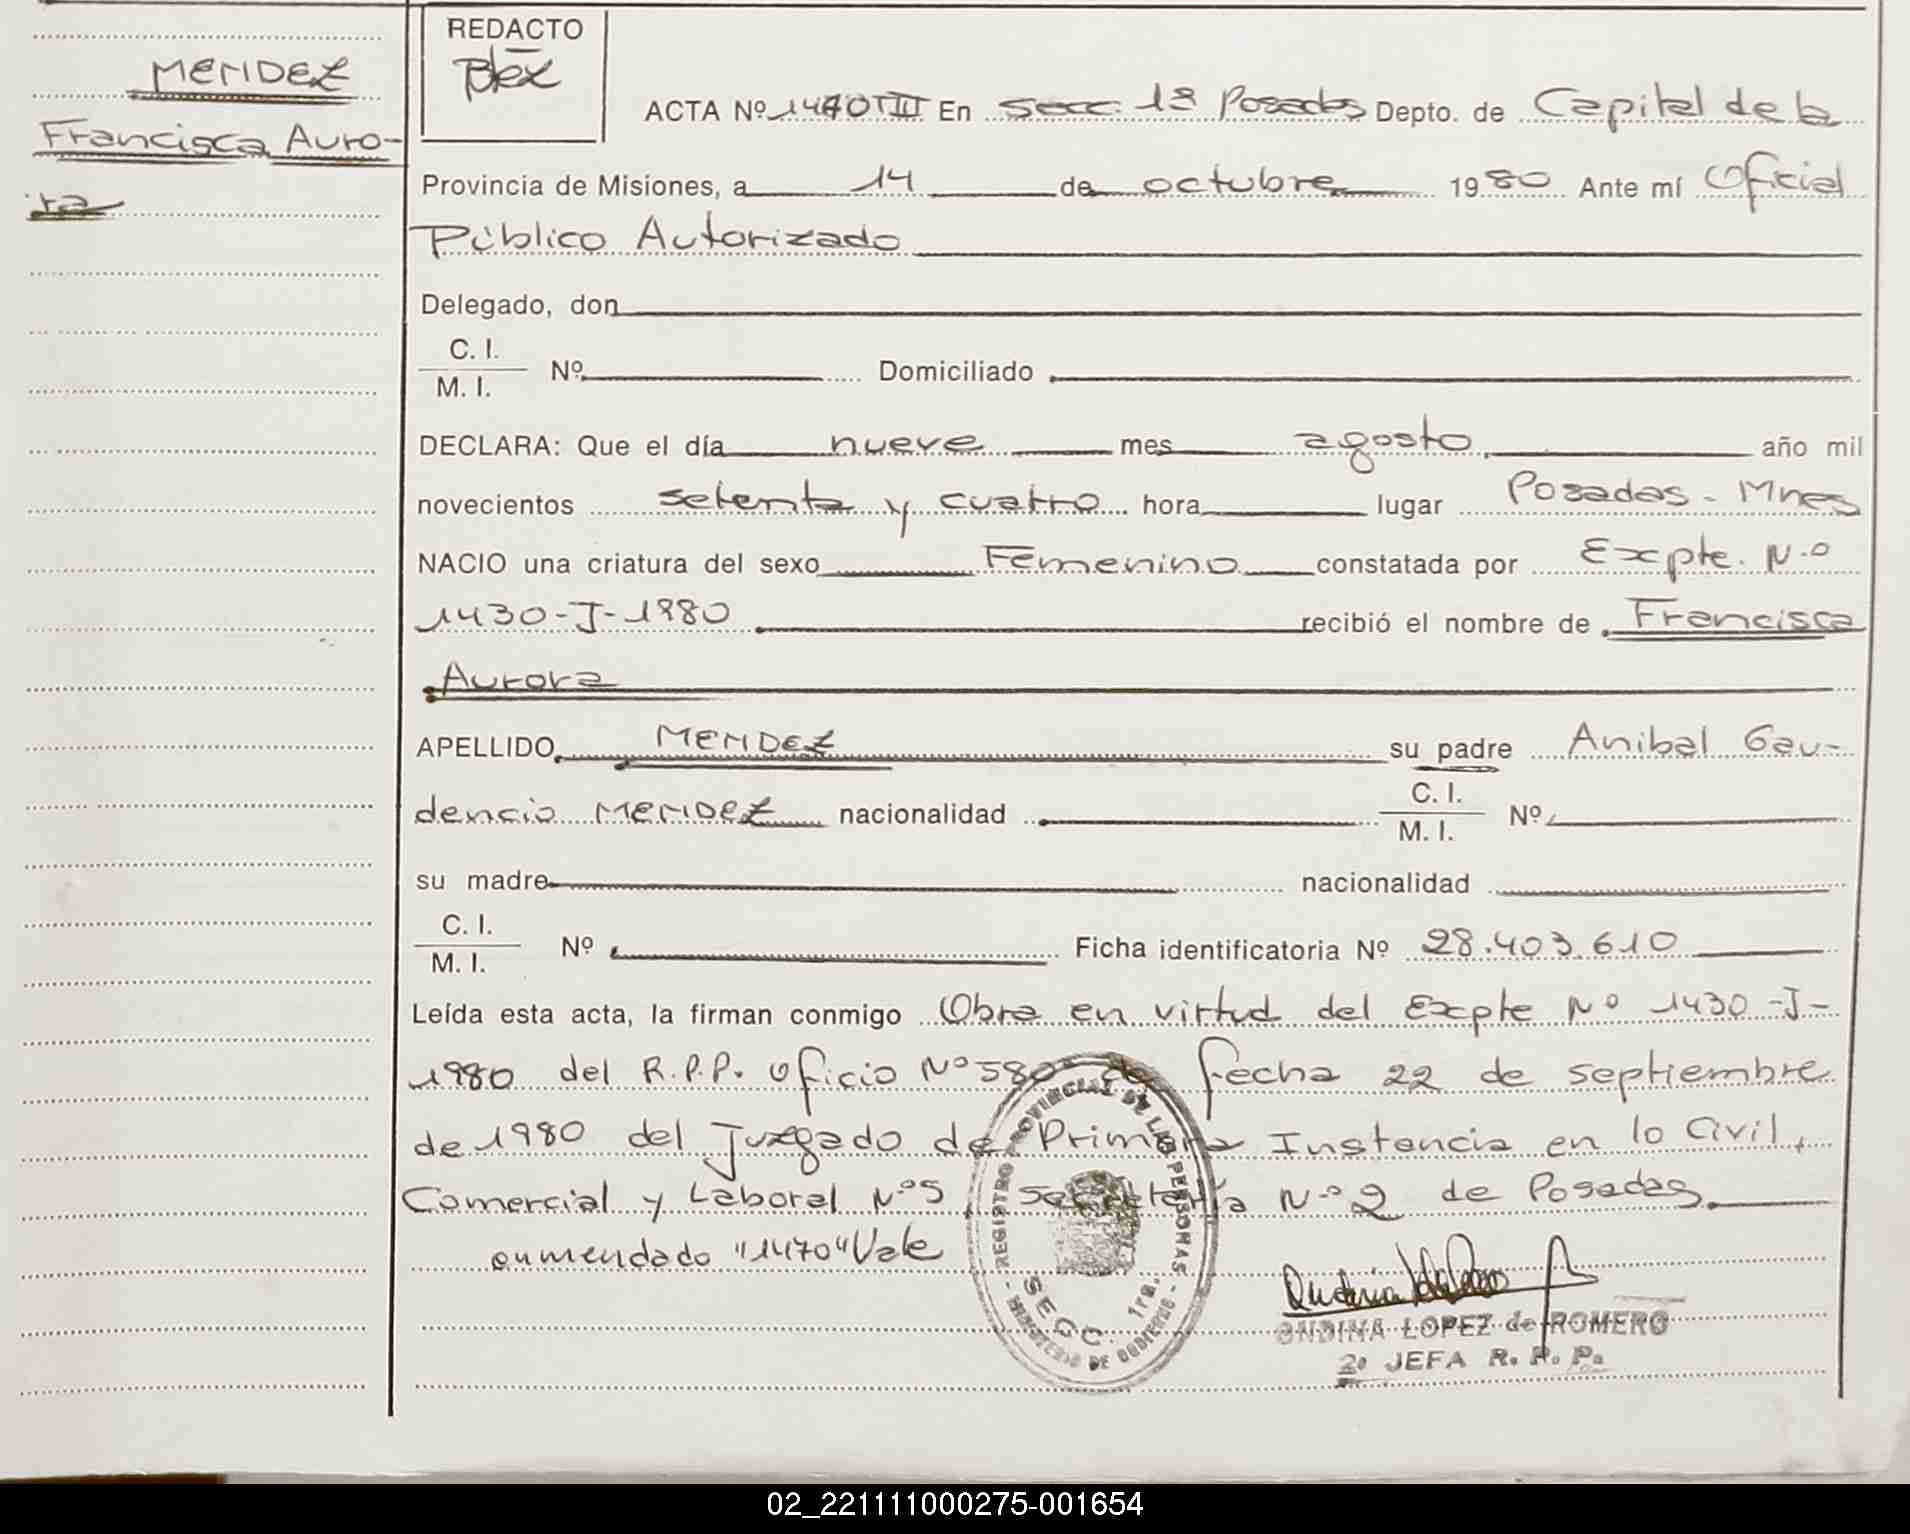 MENDEZ
Francisca Auro-
ra
REDACTO
ACTA Nº 1470 TIII En Secc. 1ª Posadas Depto. de Capital de la
Provincia de Misiones, a 14 de octubre 1980 Ante mí Oficial
Público Autorizado
Delegado, don
C. I.
M. I. Nº Domiciliado
DECLARA: Que el día nueve mes agosto año mil
novecientos setenta y cuatro hora lugar Posadas - Mnes
NACIO una criatura del sexo Femenino constatada por Expte. Nº
1430-J-1980 recibió el nombre de Francisca
Aurora
APELLIDO MENDEZ su padre Anibal Gau-
dencio MENDEZ nacionalidad C. I.
M. I. Nº
su madre nacionalidad
C. I.
M. I. Nº Ficha identificatoria Nº 28.403.610
Leída esta acta, la firman conmigo Obra en virtud del Expte Nº 1430-J-
1980 del R.P.P. oficio Nº 580 de fecha 22 de septiembre
de 1980 del Juzgado de Primera Instancia en lo Civil,
Comercial y Laboral Nº 5 Secretaría Nº 2 de Posadas.
enmendado "1470" Vale
REGISTRO PROVINCIAL DE LAS PERSONAS
SECC. 1ra.
MINISTERIO DE GOBIERNO
ONDINA LOPEZ de ROMERO
2º JEFA R. P. P.
02_221111000275-001654